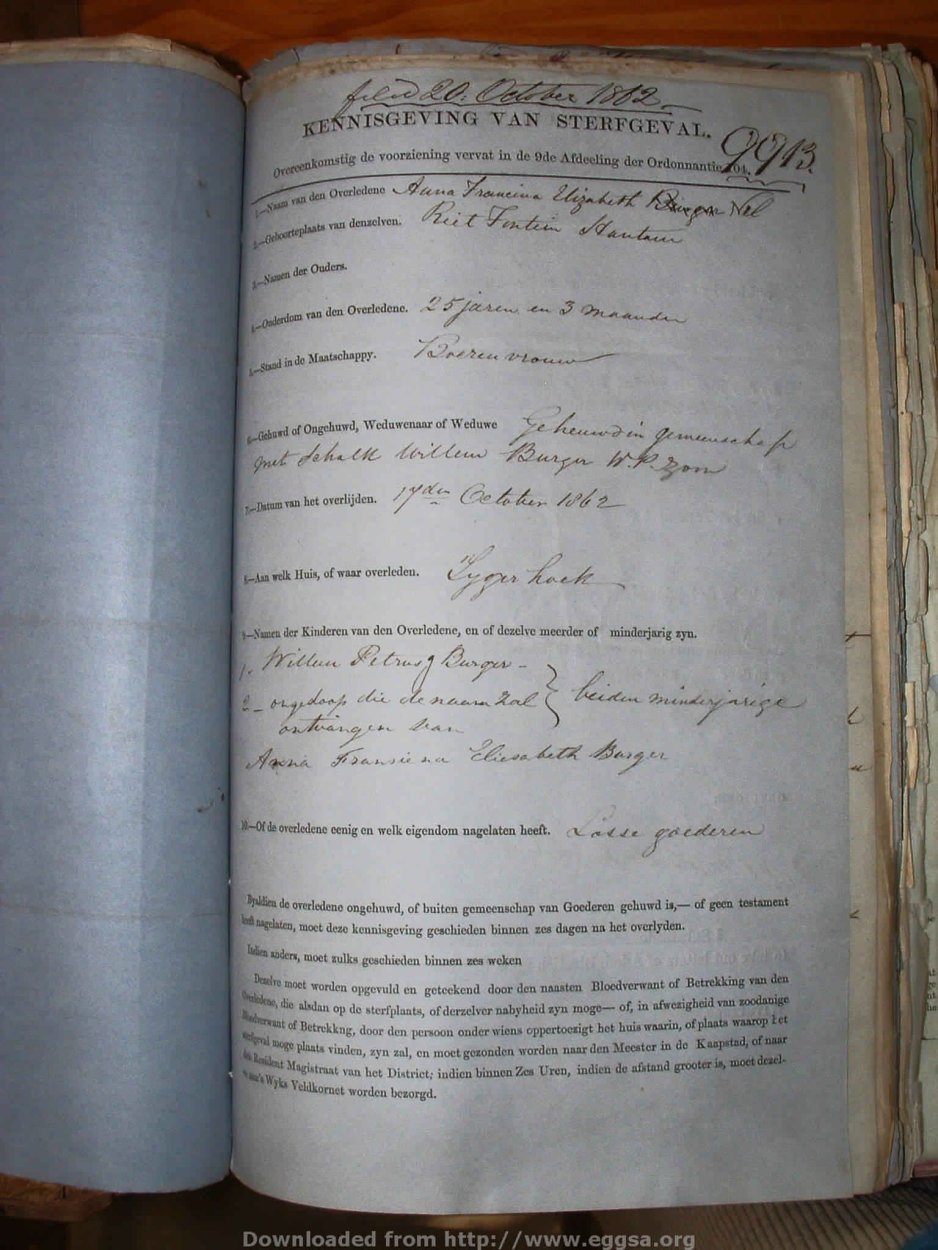 filed 20. October 1862
KENNISGEVING VAN STERFGEVAL.
9913.
Overeenkomstig de voorziening vervat in de 9de Afdeeling der Ordonnantie 104.
1.—Naam van den Overledene Anna Francina Elizabeth Burger Nel
2.—Geboorteplaats van denzelven. Riet Fontein Hantam
3.—Namen der Ouders.
4.—Ouderdom van den Overledene. 25 jaren en 3 maanden
5.—Stand in de Maatschappy. Boeren vrouw
6.—Gehuwd of Ongehuwd, Weduwenaar of Weduwe Geheuwd in gemeenschap
met Schalk Willem Burger W.P. Zoon
7.—Datum van het overlijden. 17den October 1862
8.—Aan welk Huis, of waar overleden. Tyger hoek
9.—Namen der Kinderen van den Overledene, en of dezelve meerder of minderjarig zyn.
1. Willem Petrus Burger
2 - ongedoop die de naam zal } beiden minderjarige
ontvangen van
Anna Fransiena Eliesabeth Burger
10.—Of de overledene eenig en welk eigendom nagelaten heeft. Losse goederen
Byaldien de overledene ongehuwd, of buiten gemeenschap van Goederen gehuwd is,— of geen testament
heeft nagelaten, moet deze kennisgeving geschieden binnen zes dagen na het overlyden.
Indien anders, moet zulks geschieden binnen zes weken
Dezelve moet worden opgevuld en geteekend door den naasten Bloedverwant of Betrekking van den
Overledene, die alsdan op de sterfplaats, of derzelver nabyheid zyn moge— of, in afwezigheid van zoodanige
Bloedverwant of Betrekkng, door den persoon onder wiens oppertoezigt het huis waarin, of plaats waarop het
sterfgeval moge plaats vinden, zyn zal, en moet gezonden worden naar den Meester in de Kaapstad, of naar
den Resident Magistraat van het District; indien binnen Zes Uren, indien de afstand grooter is, moet dezel-
ve aan's Wyks Veldkornet worden bezorgd.
Downloaded from http://www.eggsa.org